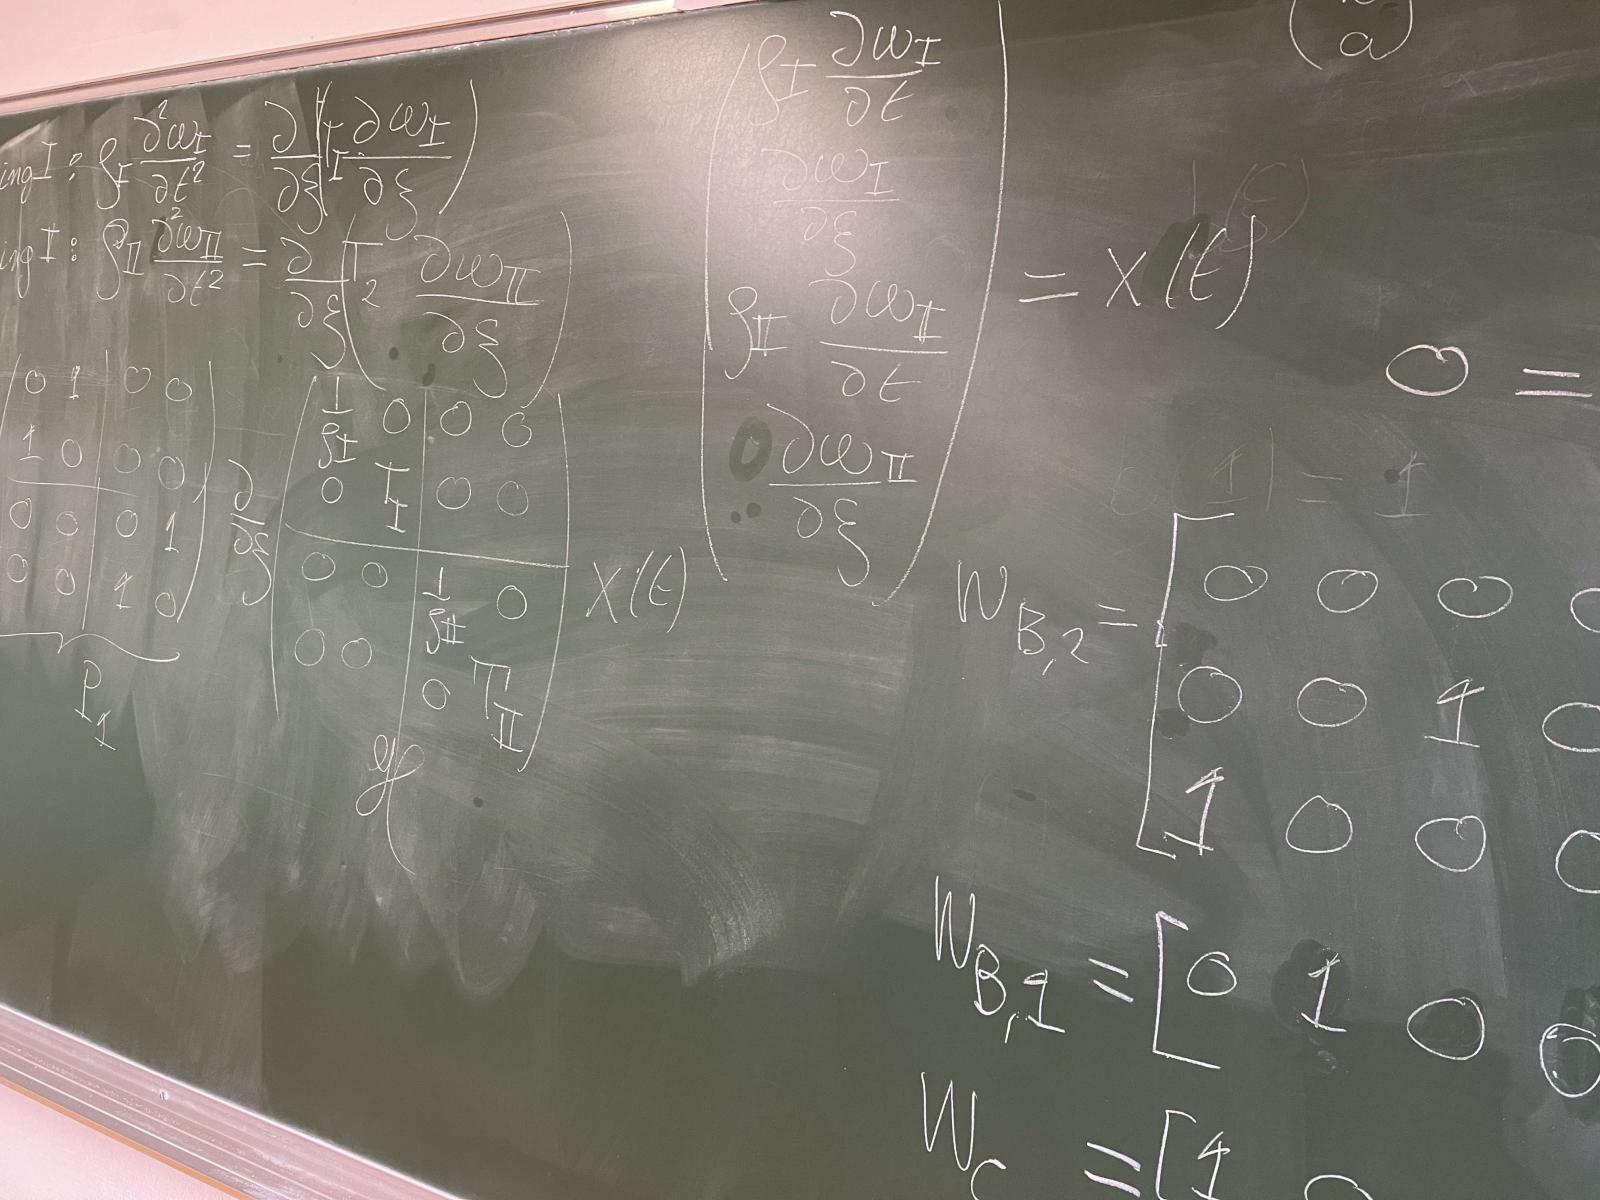 ing I : ρ_I ∂²w_I/∂t² = ∂/∂ξ (T_I ∂w_I/∂ξ)
ing I : ρ_II ∂²w_II/∂t² = ∂/∂ξ (T_2 ∂w_II/∂ξ)
(0 1 | 0 0
1 0 | 0 0
0 0 | 0 1
0 0 | 1 0)
P_1
∂/∂ξ
(1/ρ_I 0 | 0 0
0 T_I | 0 0
0 0 | 1/ρ_II 0
0 0 | 0 T_II)
X(t)
H
(ρ_I ∂w_I/∂t
∂w_I/∂ξ
ρ_II ∂w_II/∂t
∂w_II/∂ξ)
= X(t)
a
0 =
W_B,2 = [0 0 0 0
0 0 1 0
1 0 0 0
W_B,1 = [0 1 0 0
W_C = [1 0